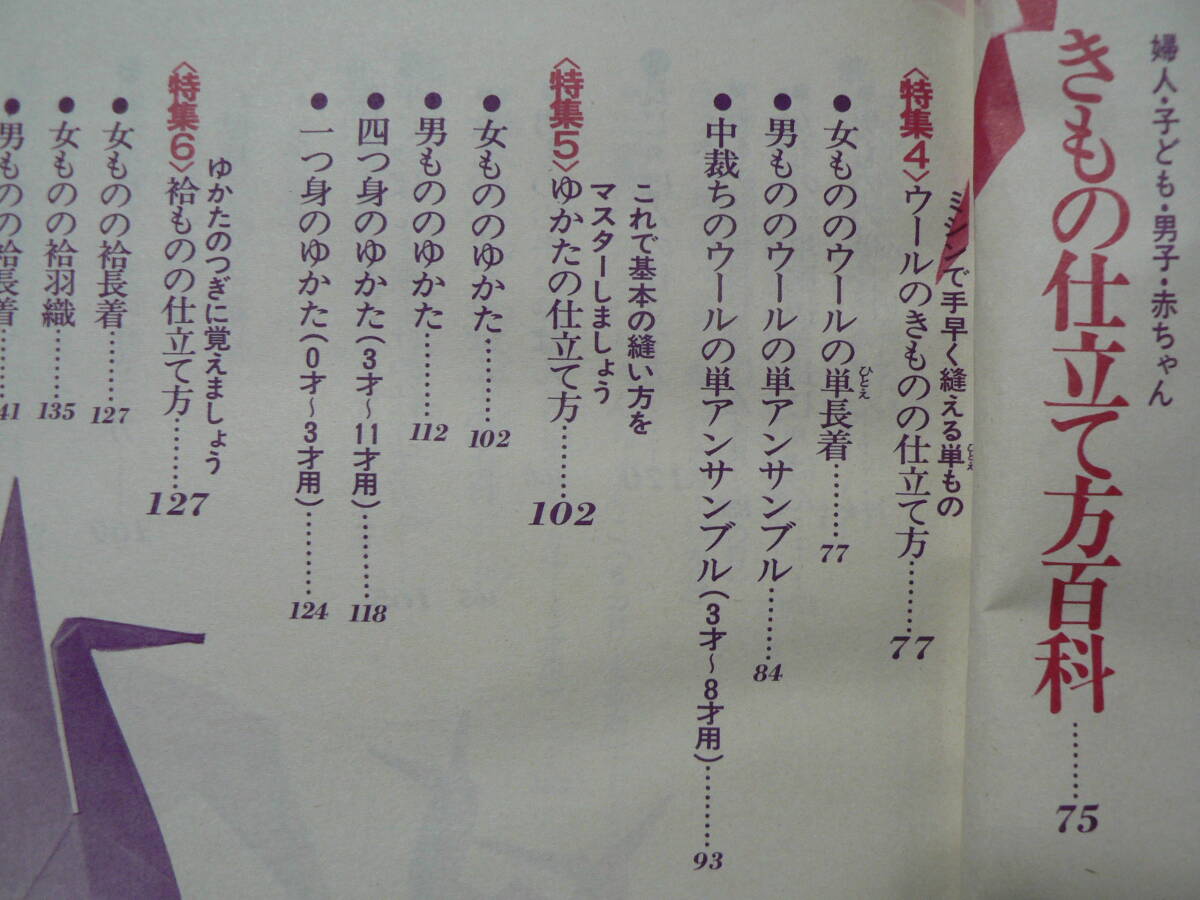 婦人・子ども・男子・赤ちゃん
きもの仕立て方百科………75
ミシンで手早く縫える単もの
ひとえ
〈特集4〉ウールのきものの仕立て方………77
●女もののウールの単長着………77
ひとえ
●男もののウールの単アンサンブル………84
●中裁ちのウールの単アンサンブル(3才〜8才用)………93
これで基本の縫い方を
マスターしましょう
〈特集5〉ゆかたの仕立て方………102
●女もののゆかた………102
●男もののゆかた………112
●四つ身のゆかた(3才〜11才用)………118
●一つ身のゆかた(0才〜3才用)………124
ゆかたのつぎに覚えましょう
〈特集6〉袷ものの仕立て方………127
●女ものの袷長着………127
●女ものの袷羽織………135
●男ものの袷長着………41